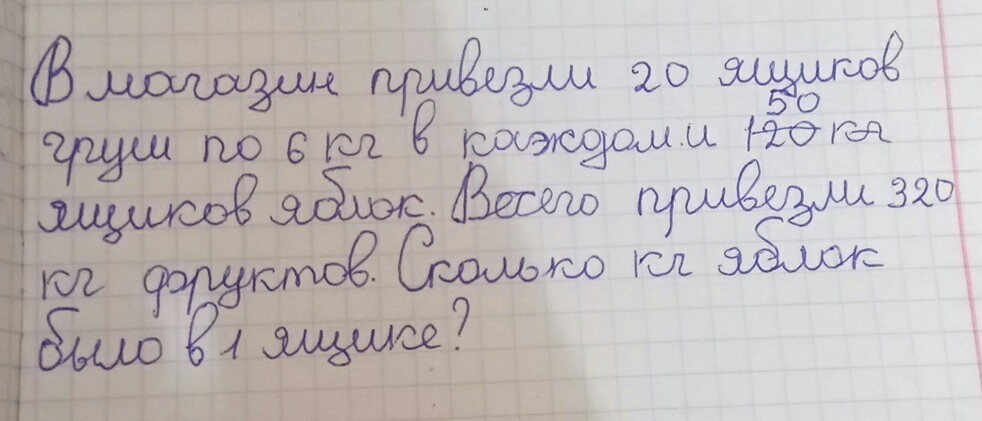 В магазин привезли 20 ящиков
50
груш по 6 кг в каждом. и 120 кг
ящиков яблок. Весего привезли 320
кг фруктов. Сколько кг яблок
было в 1 ящике?